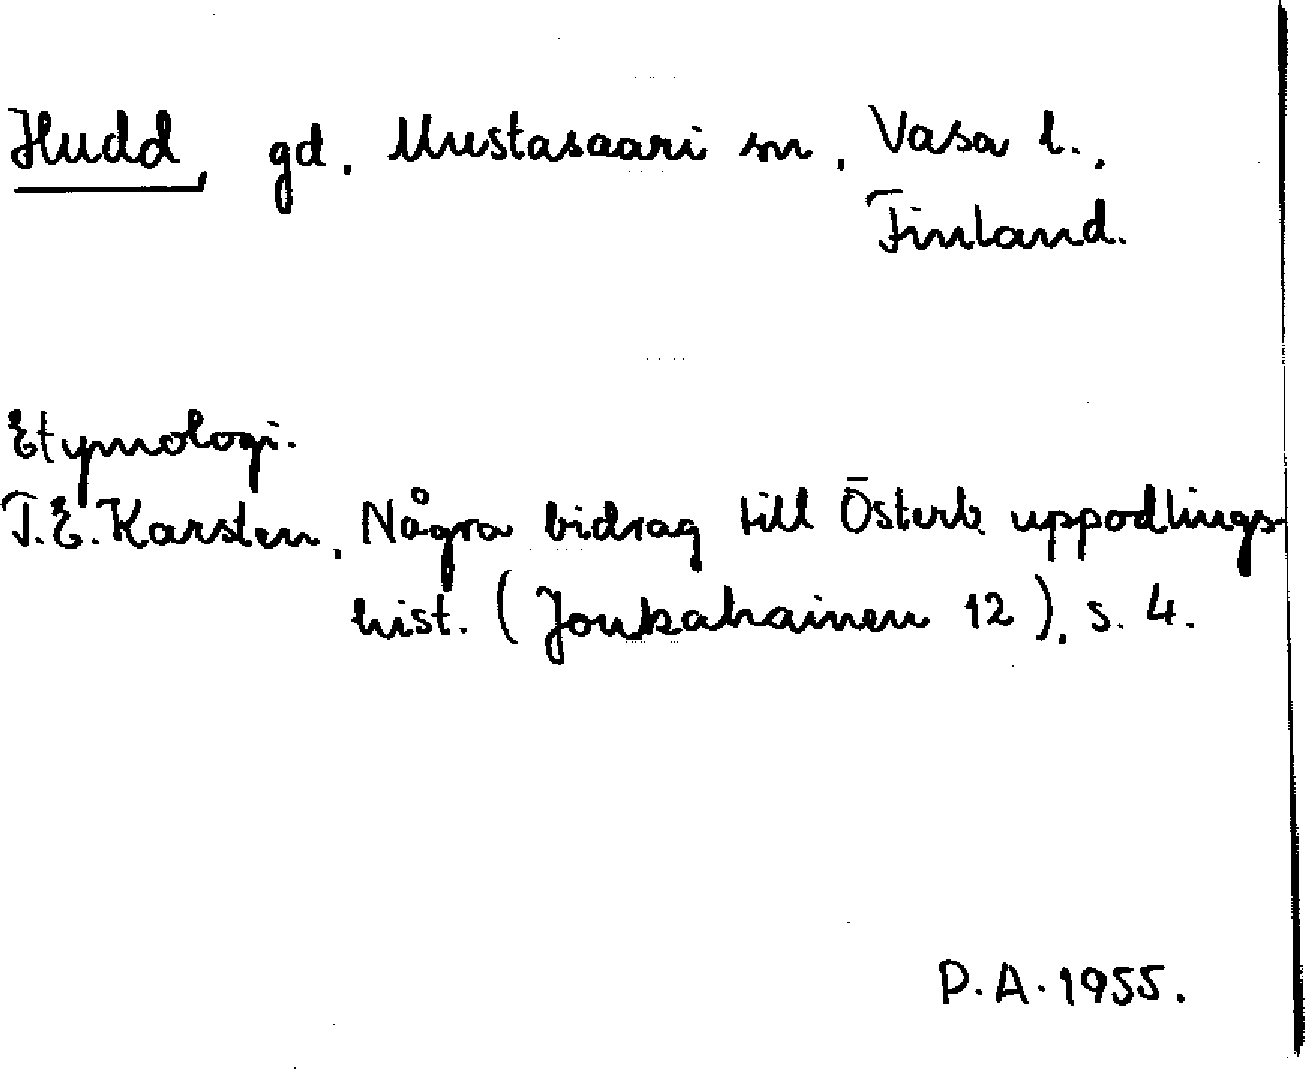 Hudd, gd, Mustasaari sn, Vasa l.,
Finland.
Etymologi.
T.E. Karsten, Några bidrag till Österb. uppodlings-
hist. (Joukahainen 12), s. 4.
P.A. 1955.